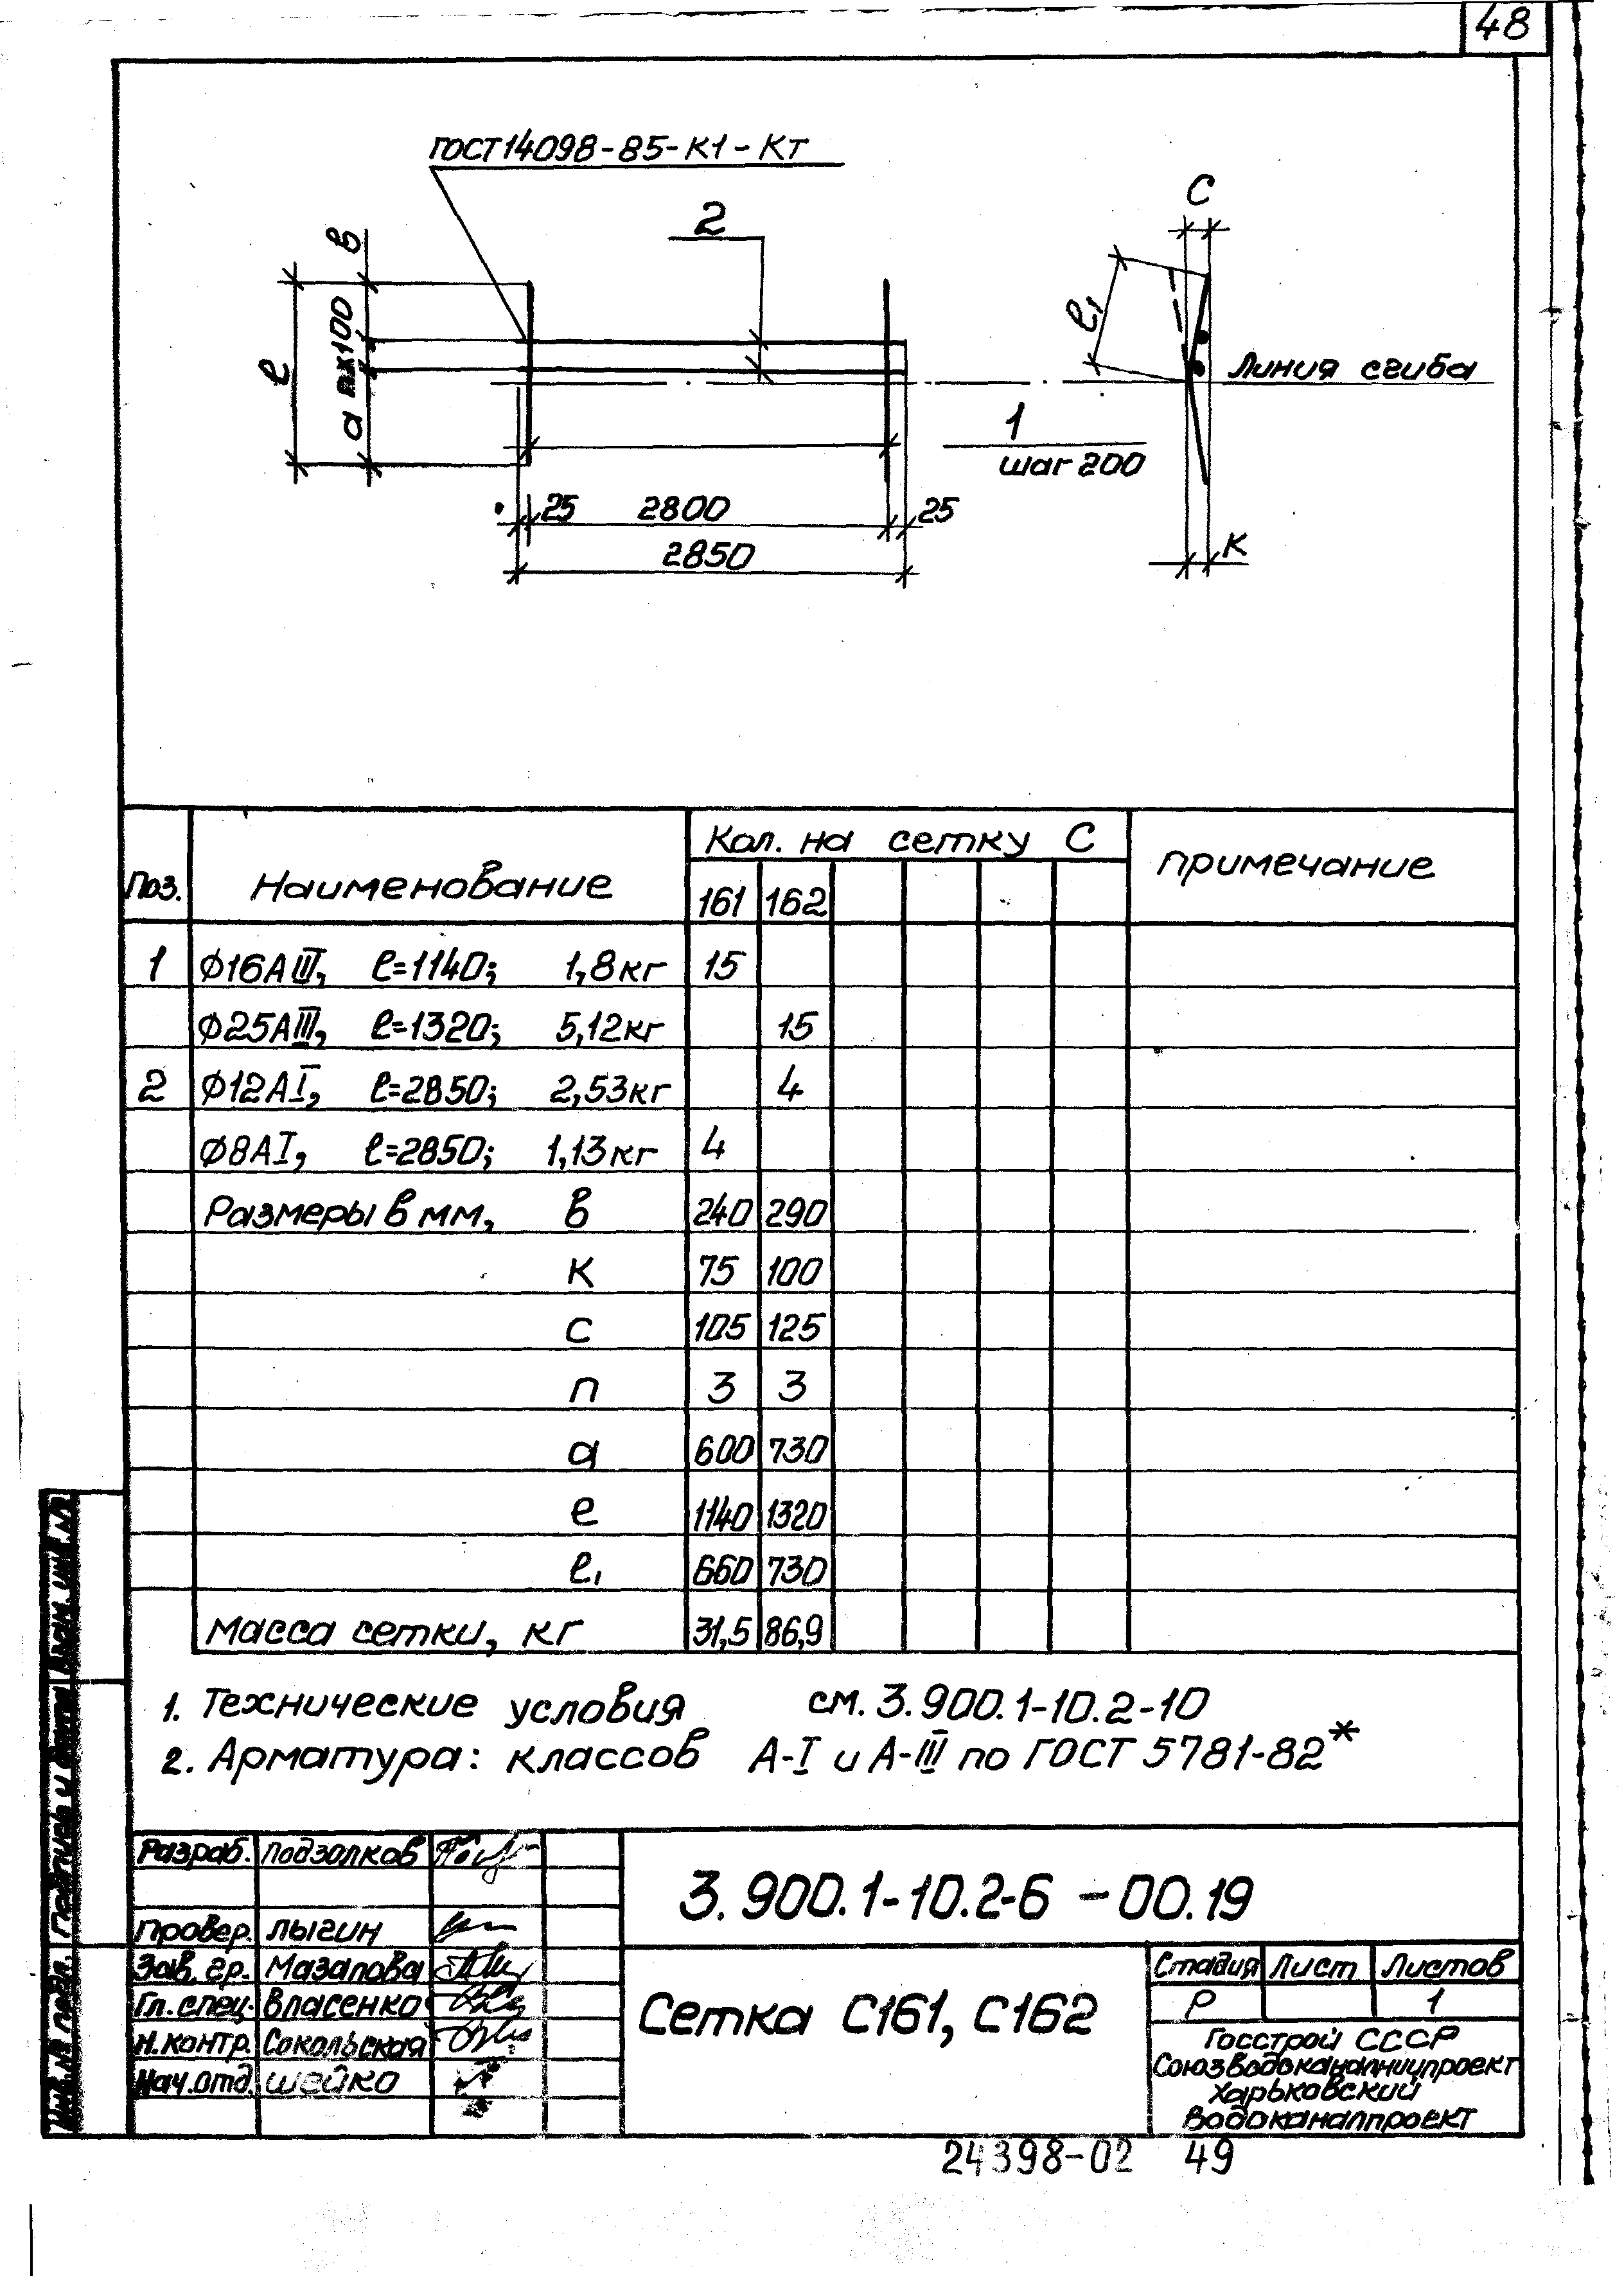 48
ГОСТ14098-85-К1-Кт
2
С
в
е
а пх100
е1
Линия сгиба
1
шаг 200
25 2800 25
2850
К
Поз. Наименование Кол. на сетку С Примечание
161 162
1 Ø16АIII, ℓ=1140; 1,8кг 15
Ø25АIII, ℓ=1320; 5,12кг 15
2 Ø12АI, ℓ=2850; 2,53кг 4
Ø8АI, ℓ=2850; 1,13кг 4
Размеры в мм, в 240 290
К 75 100
С 105 125
п 3 3
а 600 730
е 1140 1320
е1 660 730
Масса сетки, кг 31,5 86,9
1. Технические условия см. 3.900.1-10.2-10
2. Арматура: классов А-I и А-III по ГОСТ 5781-82*
Разраб. Подзолков
Провер. Лыгин
Зав. гр. Мазалова
Гл. спец. Власенко
Н.контр. Сокольская
Нач.отд. Шейко
3.900.1-10.2-6 -00.19
Сетка С161, С162
Стадия Лист Листов
Р 1
Госстрой СССР
Союзводоканалниипроект
Харьковский
Водоканалпроект
Инв.№ подл. Подпись и дата Взам. инв.№
24398-02 49